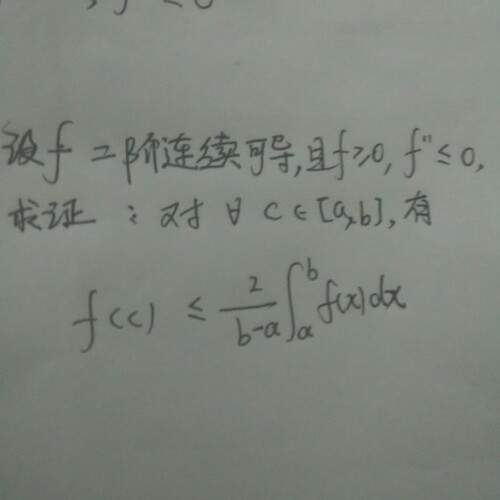 设f 二阶连续可导,且f≥0, f''≤0,
求证:对∀ c∈[a,b],有
f(c) ≤ \frac{2}{b-a}∫_a^b f(x)dx